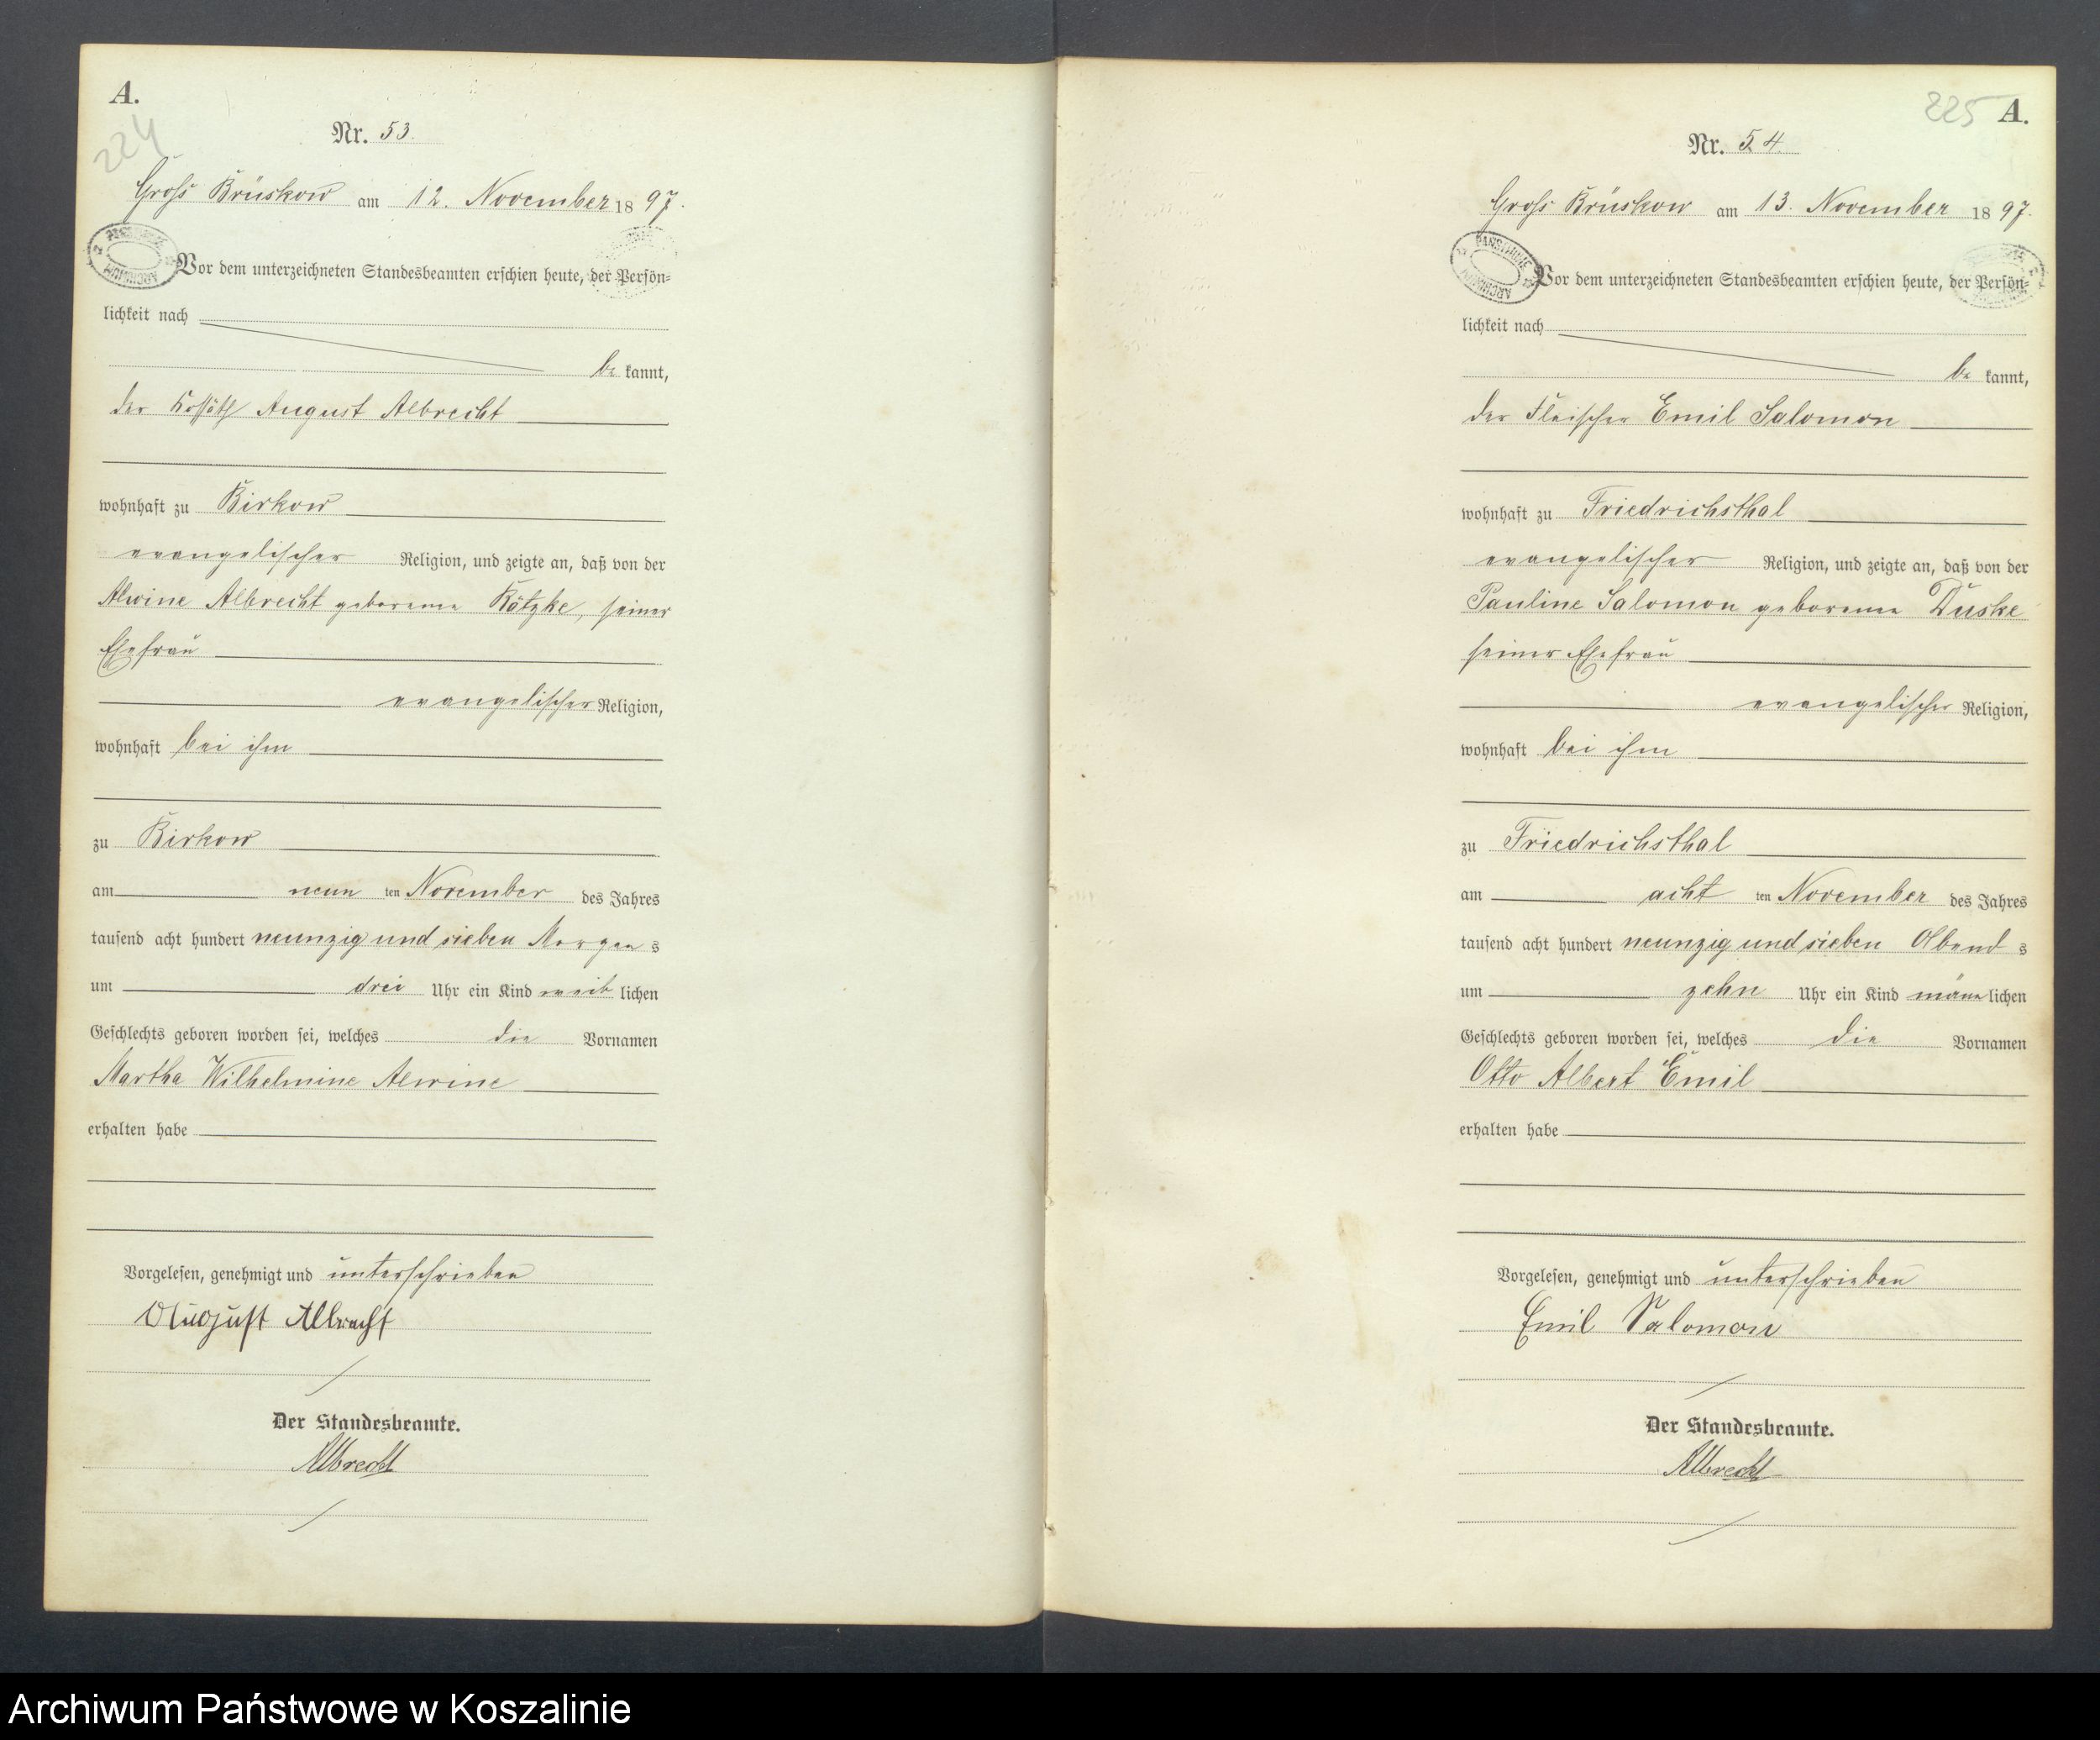 A.
224
Nr. 53.
Gross Brüskow am 12. November 1897.
Vor dem unterzeichneten Standesbeamten erschien heute, der Persön=
lichkeit nach
be kannt,
der Kossäth August Albrecht
wohnhaft zu Birkow
evangelischer Religion, und zeigte an, daß von der
Alwine Albrecht geborene Kätzke, seiner
Ehefrau
evangelischer Religion,
wohnhaft bei ihm
zu Birkow
am neun ten November des Jahres
tausend acht hundert neunzig und sieben Morgen s
um drei Uhr ein Kind weib lichen
Geschlechts geboren worden sei, welches die Vornamen
Martha Wilhelmine Alwine
erhalten habe
Vorgelesen, genehmigt und unterschrieben
August Albrecht
Der Standesbeamte.
Albrecht
225 A.
Nr. 54.
Gross Brüskow am 13. November 1897.
PAŃSTWOWE
ARCHIWUM
Vor dem unterzeichneten Standesbeamten erschien heute, der Persön=
lichkeit nach
be kannt,
der Fleischer Emil Salomon
wohnhaft zu Friedrichsthal
evangelischer Religion, und zeigte an, daß von der
Pauline Salomon geborene Duske
seiner Ehefrau
evangelischer Religion,
wohnhaft bei ihm
zu Friedrichsthal
am acht ten November des Jahres
tausend acht hundert neunzig und sieben Abend s
um zehn Uhr ein Kind männ lichen
Geschlechts geboren worden sei, welches die Vornamen
Otto Albert Emil
erhalten habe
Vorgelesen, genehmigt und unterschrieben
Emil Salomon
Der Standesbeamte.
Albrecht
Archiwum Państwowe w Koszalinie